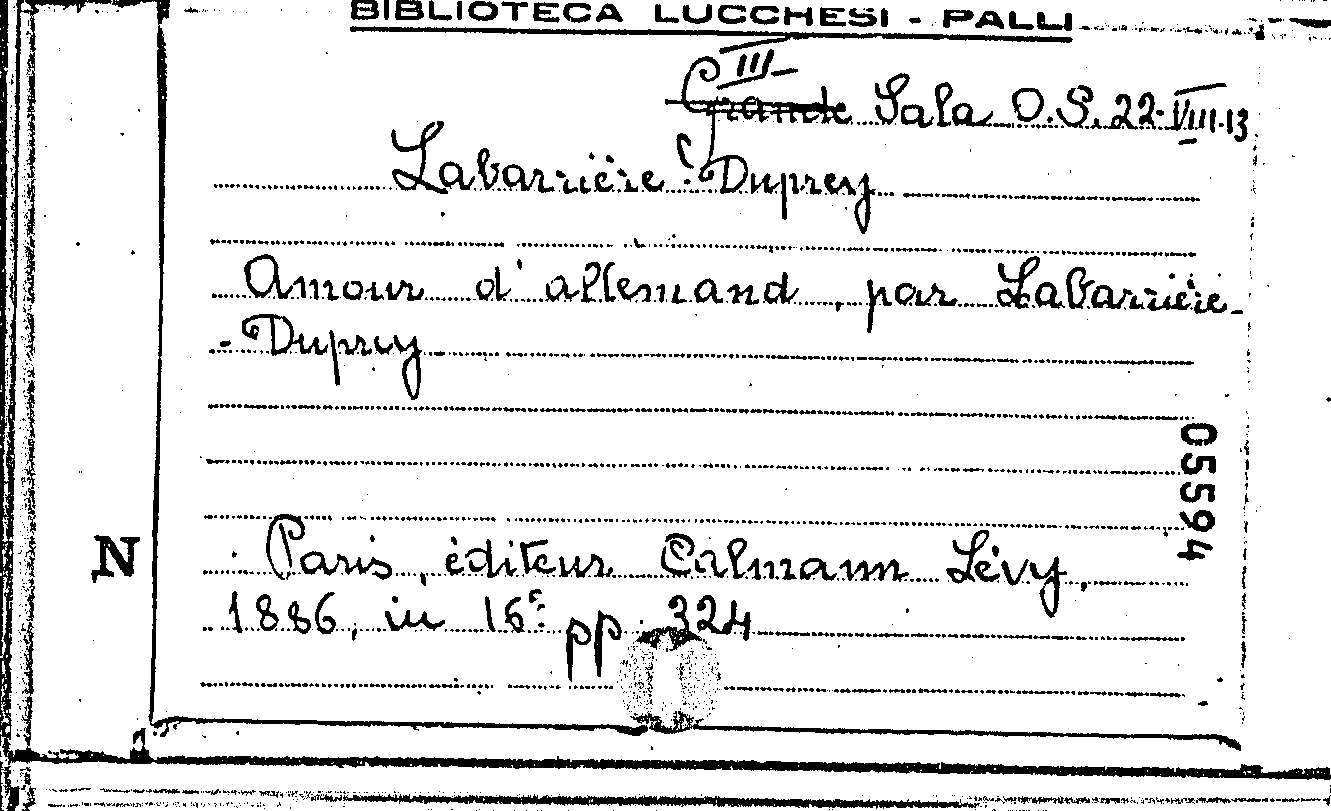 BIBLIOTECA LUCCHESI - PALLI
III
Grande Sala O.S. 22-VIII-13
Labarrière Duprey
Amour d'allemand, par Labarrière-
-Duprey
05594
N
Paris, éditeur Calmann Lévy,
1886, in 16º pp. 324